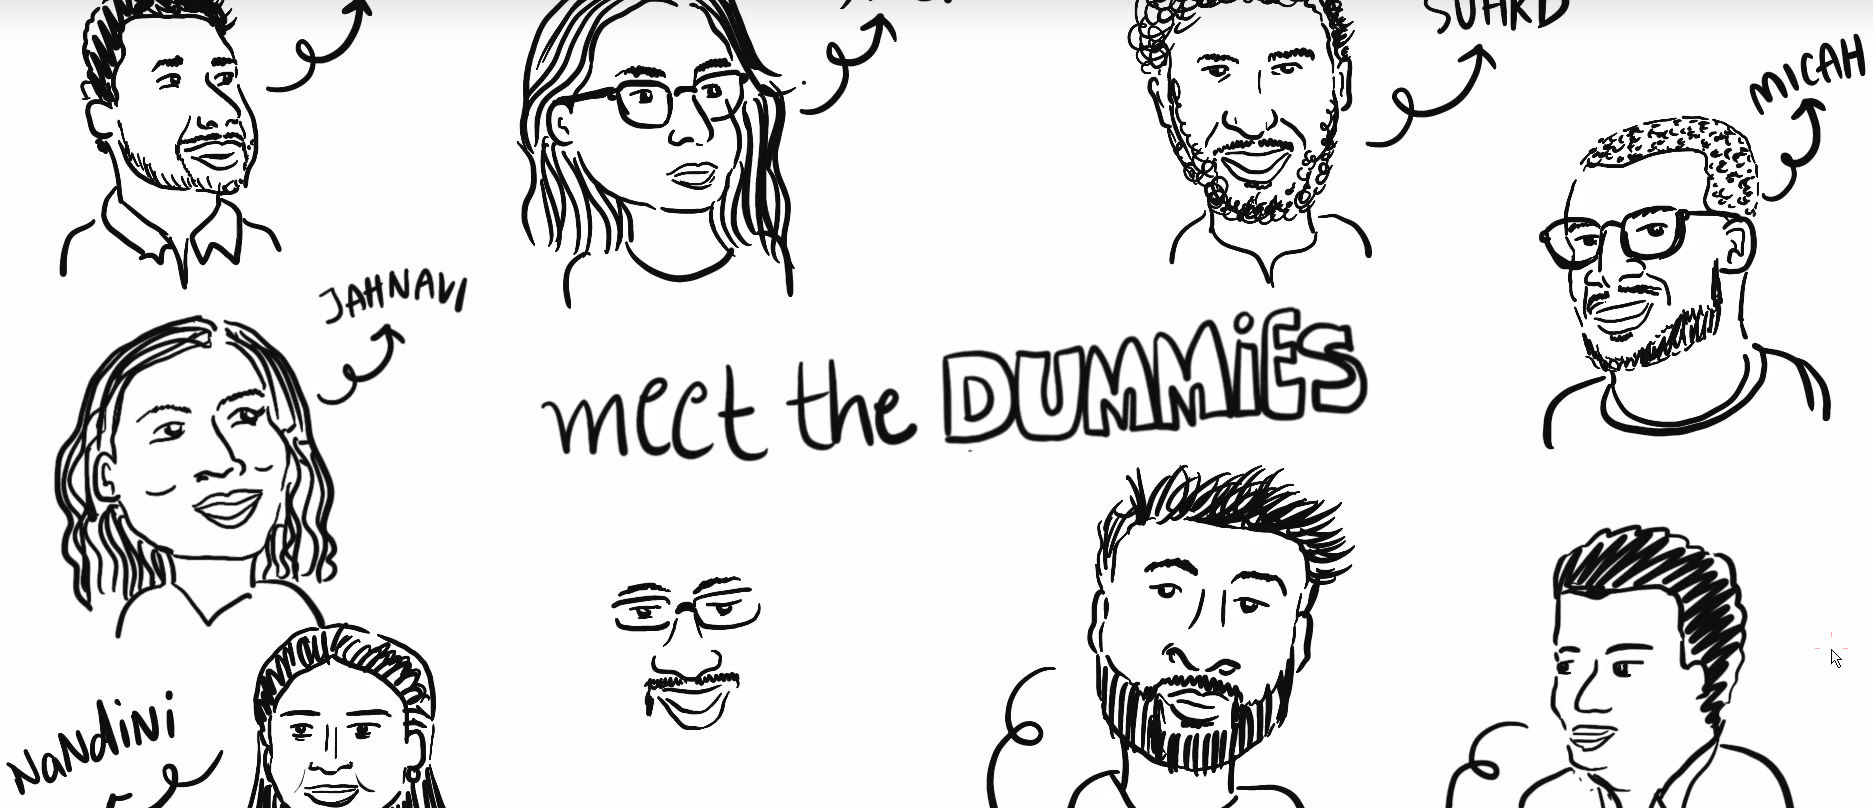 MICAH
JAHNAVI
meet the DUMMiES
NaNdiNi